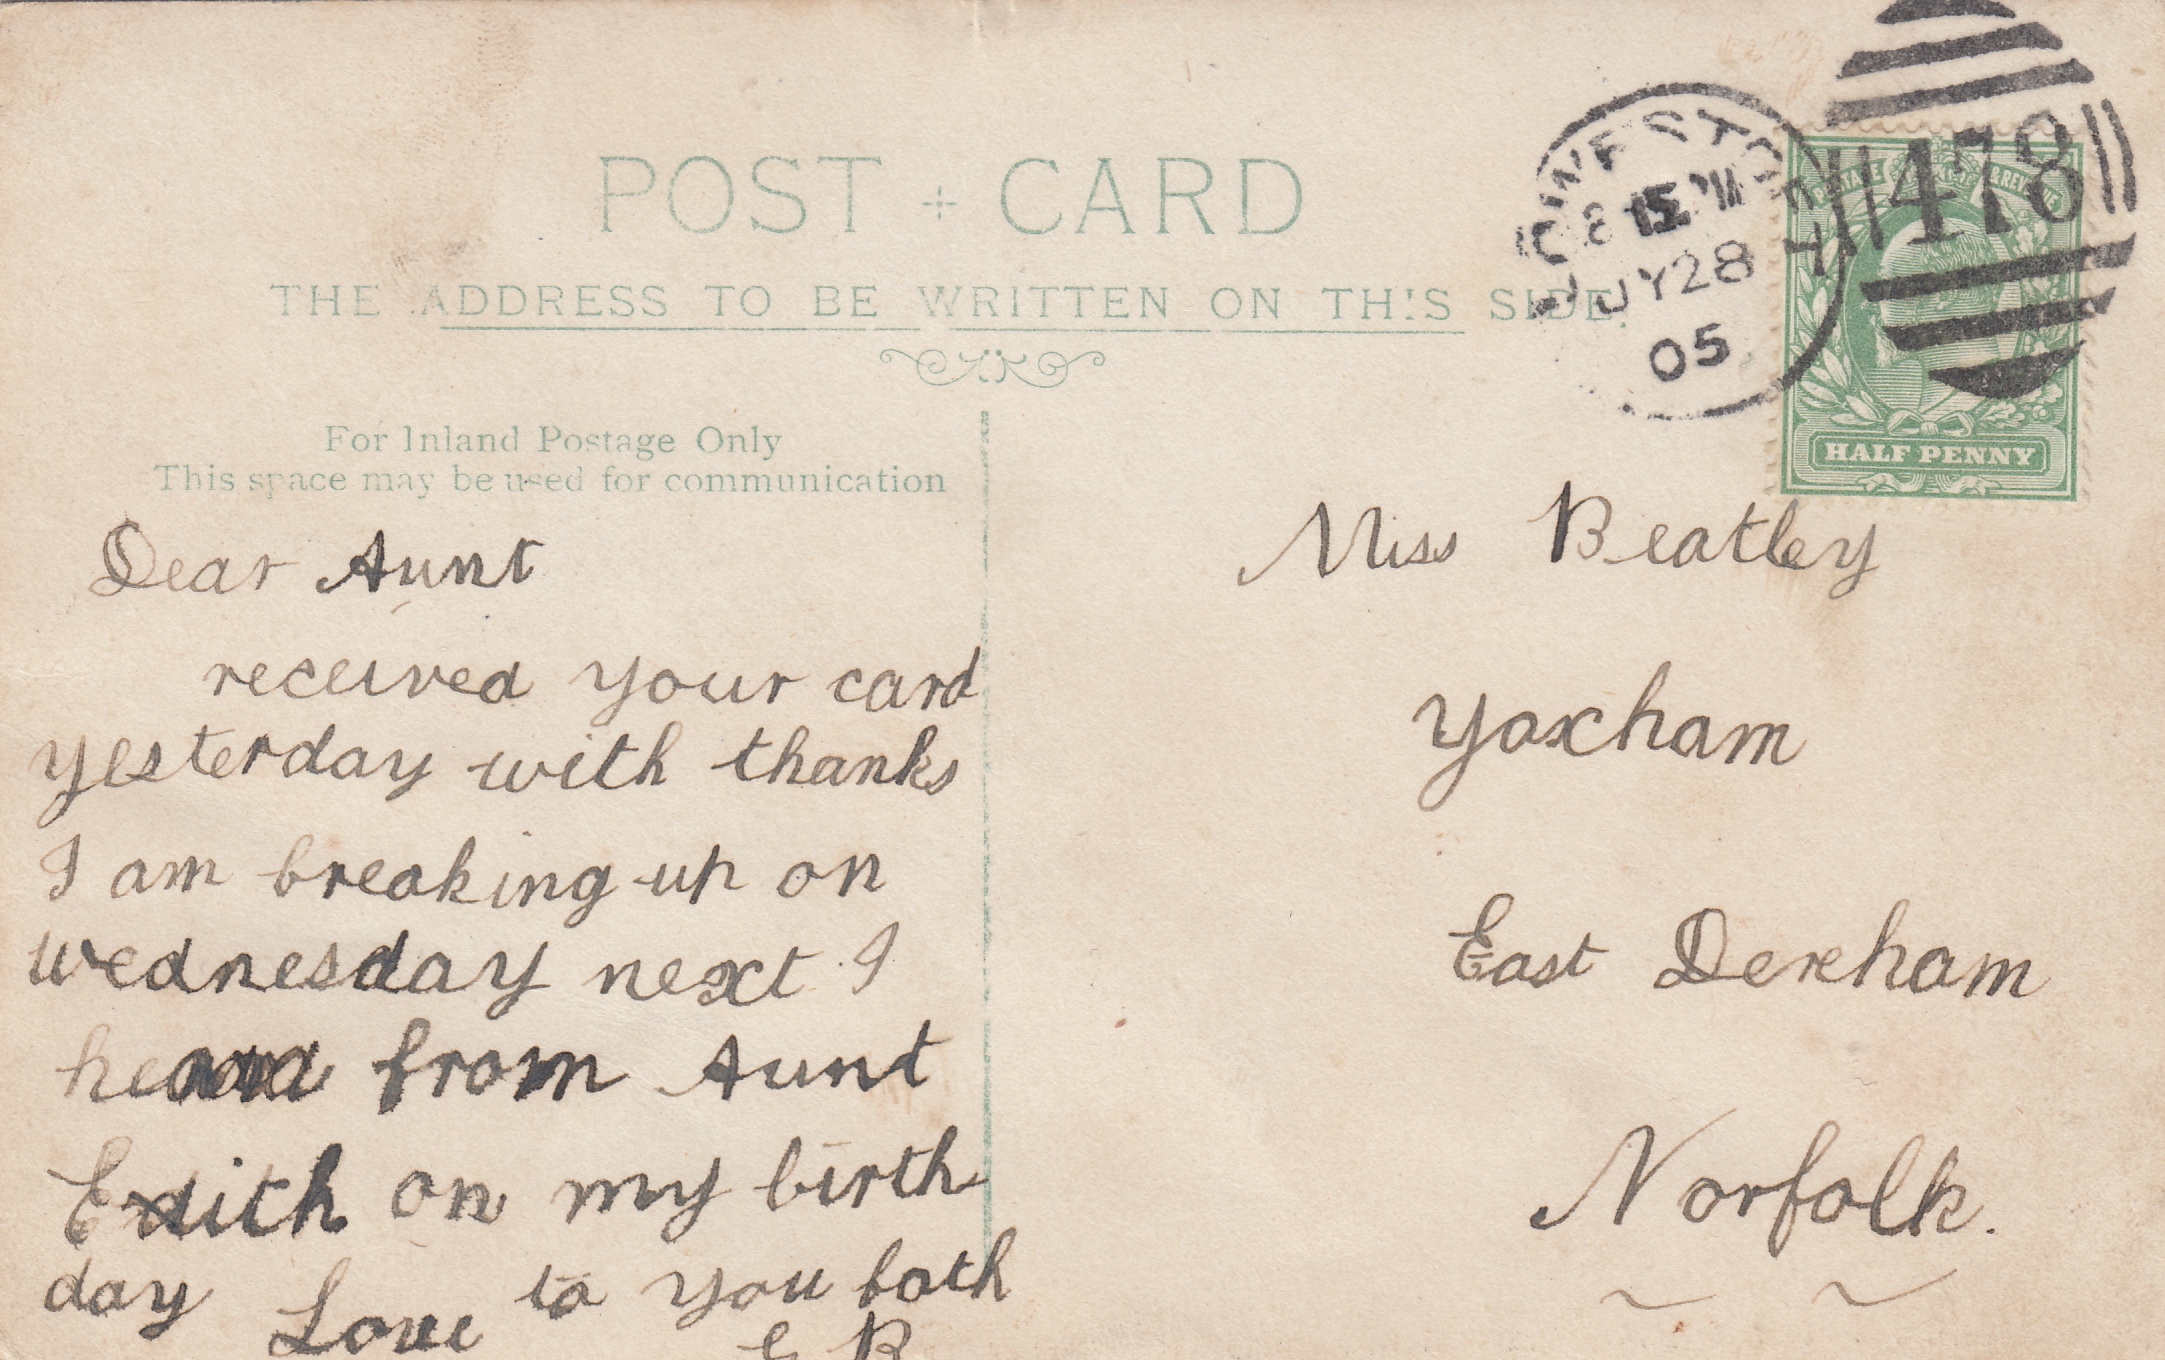 POST CARD
THE ADDRESS TO BE WRITTEN ON THIS SIDE.
LOWESTOFT
8 15 PM
JY 28
05
478
POSTAGE & REVENUE
HALF PENNY
For Inland Postage Only
This space may be used for communication
Dear Aunt
received your card
yesterday with thanks
I am breaking up on
wednesday next I
heard from Aunt
Edith on my birth
day Love to you both
E B
Miss Beatley
Yaxham
East Dereham
Norfolk.